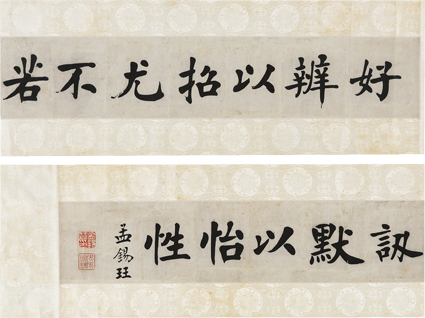 好辨以招尤不若
訒默以怡性
孟錫珏